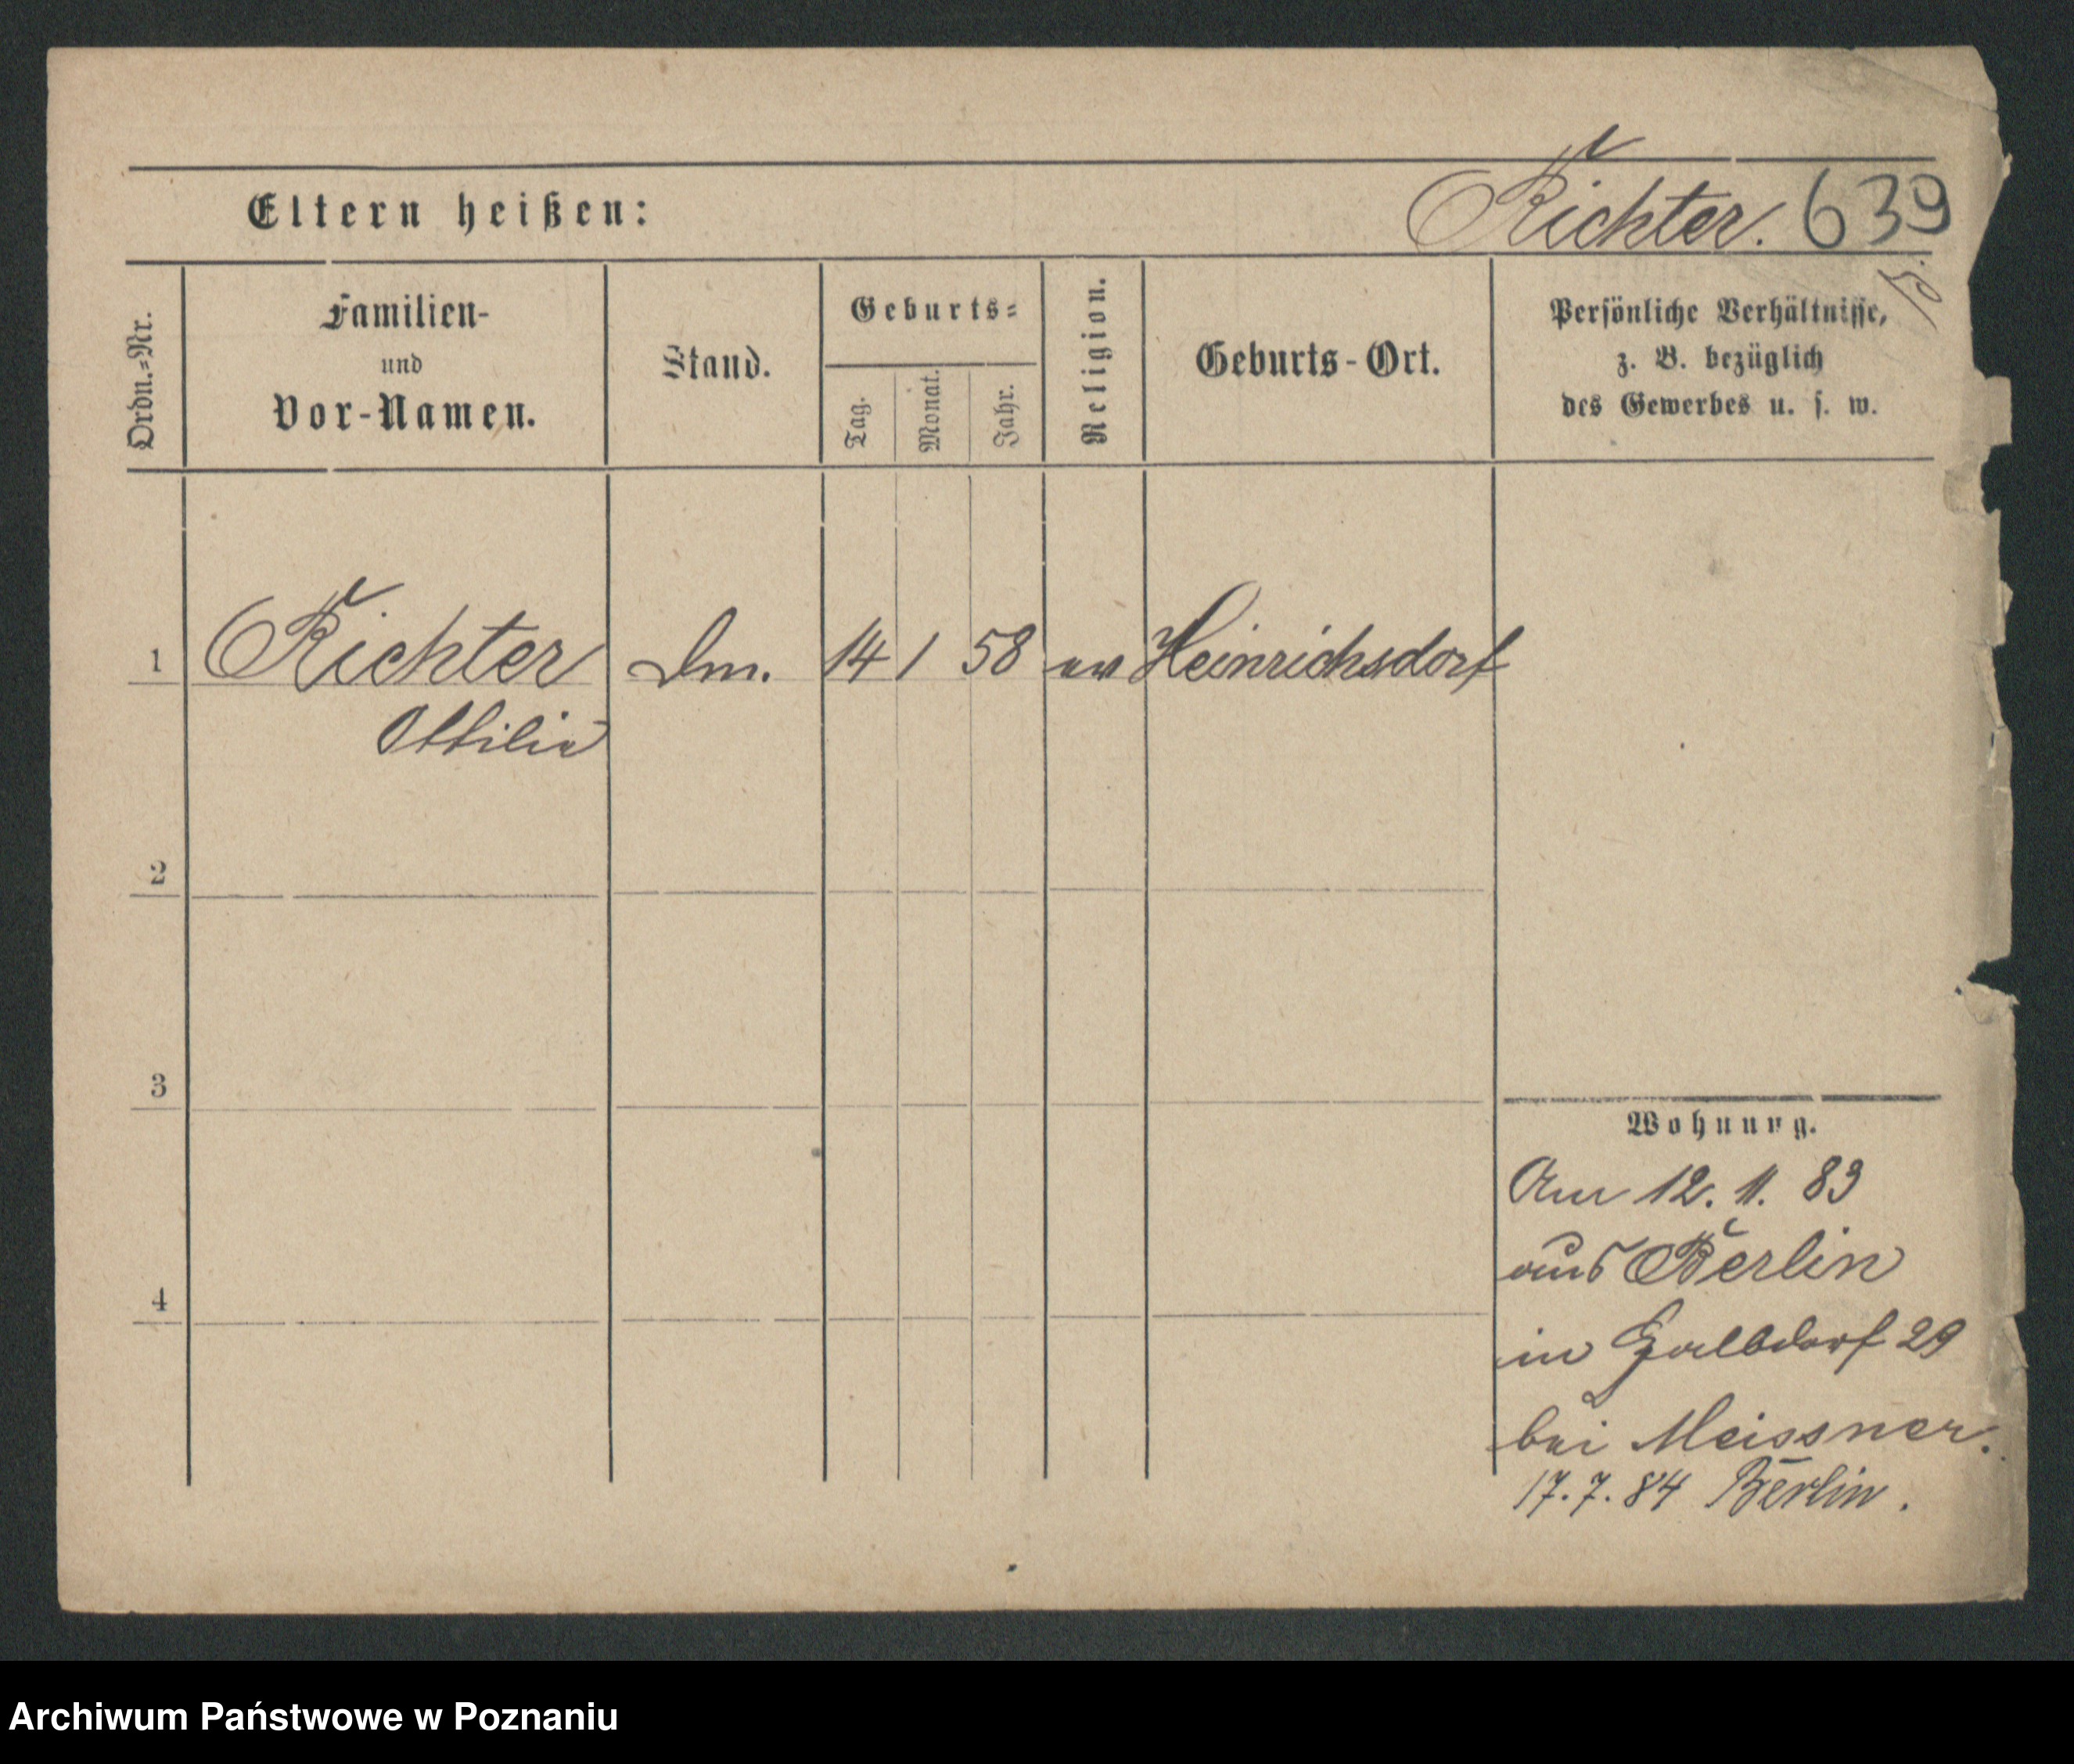 Eltern heißen:
Richter. 639
Ordn.-Nr.
Familien-
und
Vor-Namen.
Stand.
Geburts=
Tag.
Monat.
Jahr.
Religion.
Geburts-Ort.
Persönliche Verhältnisse,
z. B. bezüglich
des Gewerbes u. s. w.
1 Richter Dm. 14 1 58 ev Heinrichsdorf
Ottilie
2
3
4
Wohnung.
Am 12. 11. 83
aus Berlin
in 29
bei Meissner.
17. 7. 84 Berlin.
Archiwum Państwowe w Poznaniu